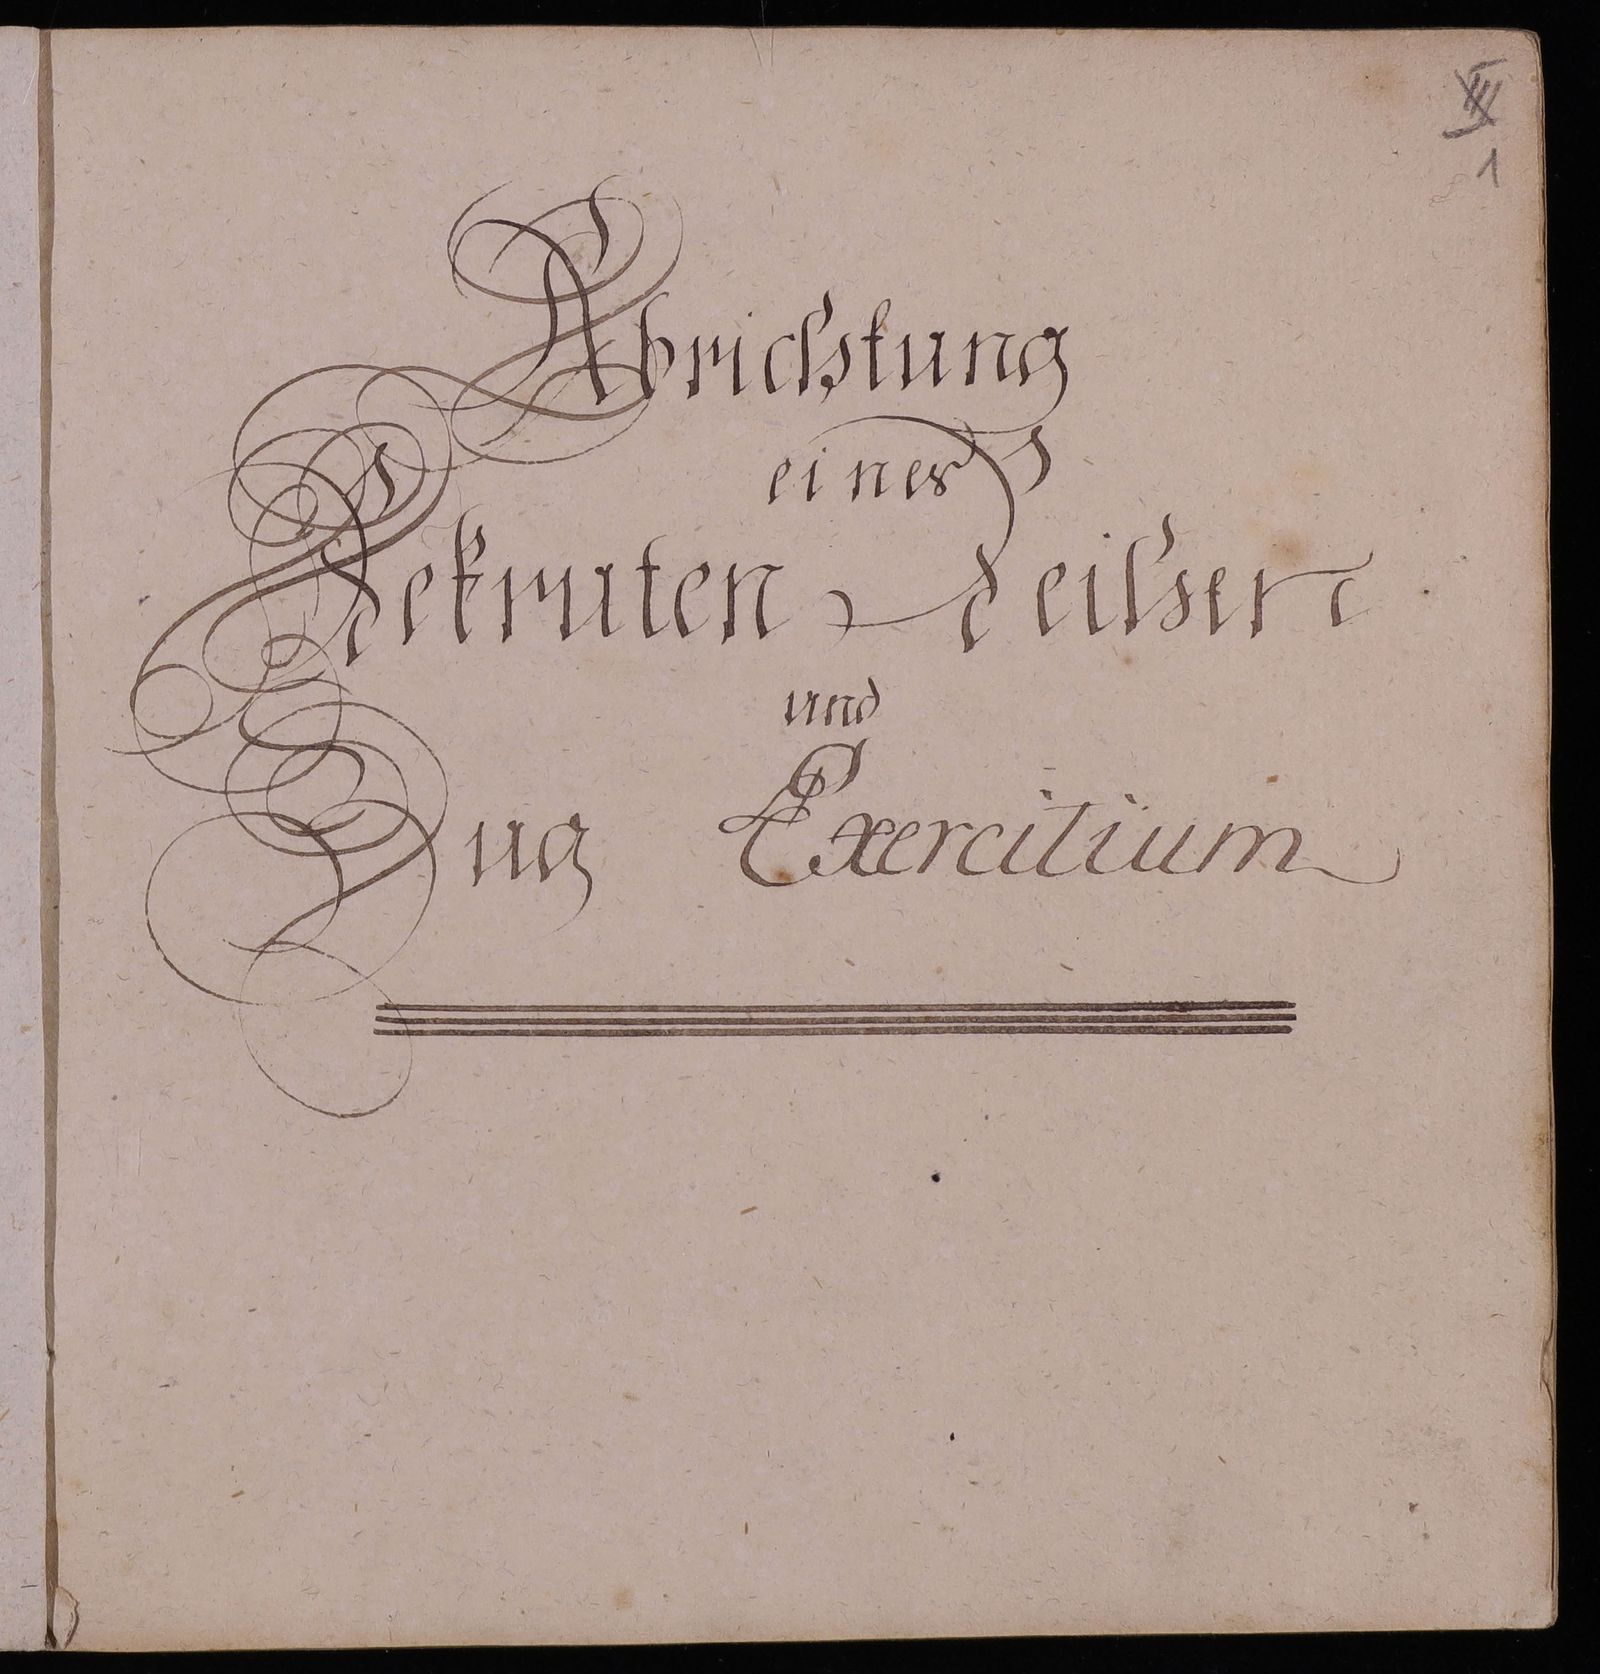 1
Abrichtung
eines
Rekruten Reihen
und
Zug Exercitium